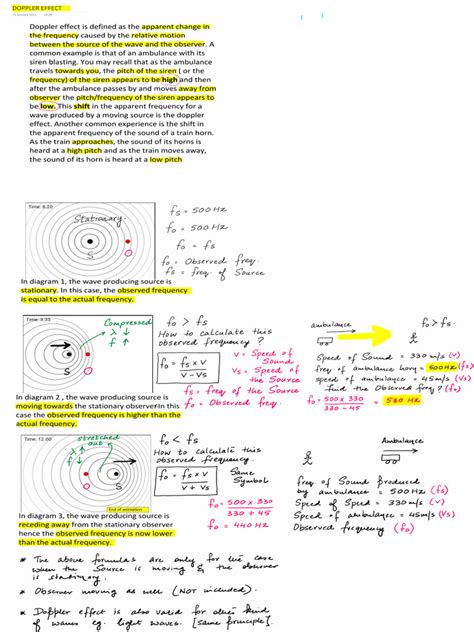 DOPPLER EFFECT
Doppler effect is defined as the apparent change in
the frequency caused by the relative motion
between the source of the wave and the observer. A
common example is that of an ambulance with its
siren blasting. You may recall that as the ambulance
travels towards you, the pitch of the siren ( or the
frequency) of the siren appears to be high and then
after the ambulance passes by and moves away from
observer the pitch/frequency of the siren appears to
be low. This shift in the apparent frequency for a
wave produced by a moving source is the doppler
effect. Another common experience is the shift in
the apparent frequency of the sound of a train horn.
As the train approaches, the sound of its horns is
heard at a high pitch and as the train moves away,
the sound of its horn is heard at a low pitch
Time: 8.20
Stationary
S
O
fs = 500 Hz
fo = 500 Hz
fo = fs
fo = Observed freq.
fs = freq. of Source
In diagram 1, the wave producing source is
stationary. In this case, the observed frequency
is equal to the actual frequency.
Time: 3.35
Compressed
λ ↓
f ↑
S
O
fo > fs
How to calculate this
observed frequency ?
fo = fs x V
V - Vs
V = Speed of
Sound
Vs = Speed of
the Source
fs = freq of the Source
fo = Observed freq.
ambulance
fo > fs
Speed of Sound = 330 m/s (V)
freq of ambulance horn = 500 Hz (fs)
speed of ambulance = 45 m/s (Vs)
find the Observed freq ? (fo)
fo = 500 x 330
330 - 45
= 580 Hz
In diagram 2 , the wave producing source is
moving towards the stationary observer. In this
case the observed frequency is higher than the
actual frequency.
Time: 12.60
stretched
out
λ ↑
f ↓
S
O
End of animation
fo < fs
How to calculate this
observed frequency.
fo = fs x V
V + Vs
Same
Symbol
fo = 500 x 330
330 + 45
fo = 440 Hz
Ambulance
freq of Sound Produced
by ambulance = 500 Hz (fs)
Speed of Speed = 330 m/s (V)
Speed of ambulance = 45 m/s (Vs)
Observed frequency (fo)
In diagram 3, the wave producing source is
receding away from the stationary observer
hence the observed frequency is now lower
than the actual frequency.
* The above formulas are only for the case
when the Source is moving & the observer
is stationary.
* Observer moving as well (NOT included).
* Doppler effect is also valid for other kind
of waves eg. light waves. [same principle].